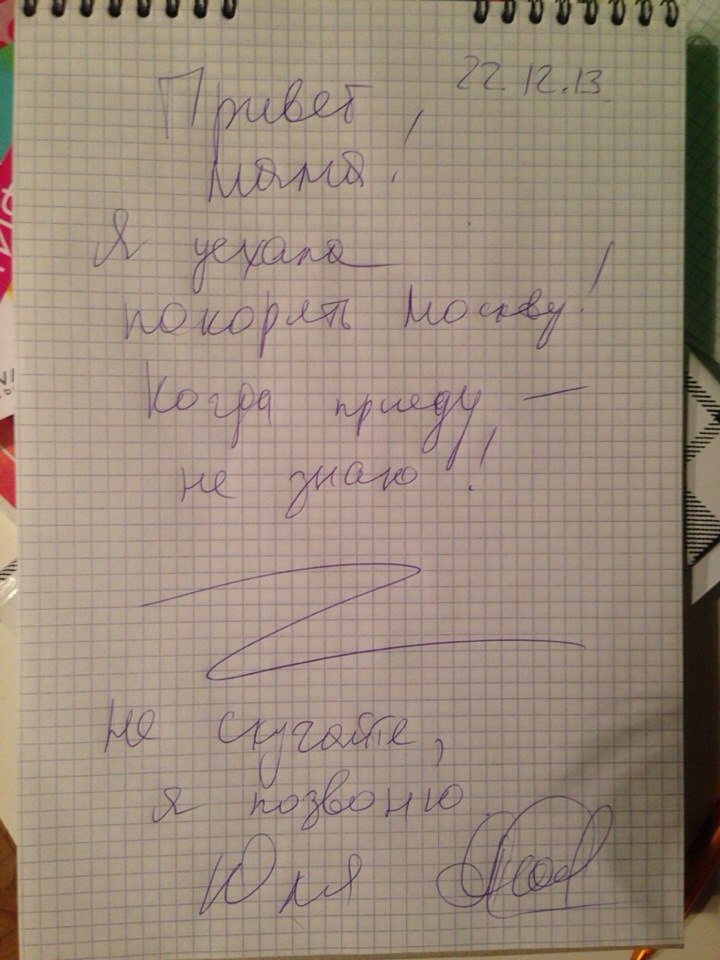 22.12.13
Привет
мама!
Я уехала
покорять Москву!
Когда приеду —
не знаю!
Не скучайте,
я позвоню
Юля